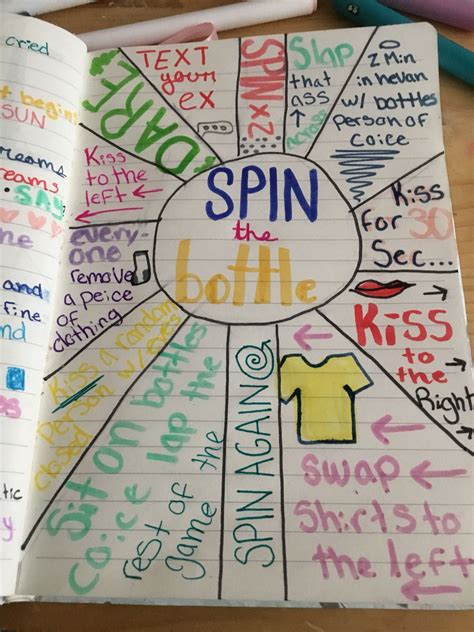 cried
t begin!
SUN
reams
reams
SAY
me
and
Fine
nd
ps
tic
y
SPIN
the
bottle
DARE
TEXT
your
ex
SPIN
2x
Slap
that
ass
across
2 Min
in hevan
w/ bottles
person of
coice
Kiss
for 30
Sec...
Kiss
to the
Right
swap
Shirts to
the left
SPIN AGAIN
Sit on bottles
coice lap the
rest of the
Game
Kiss a random
Person w/ eyes
closed
every-
one
remove
a peice
of
clothing
Kiss
to the
left